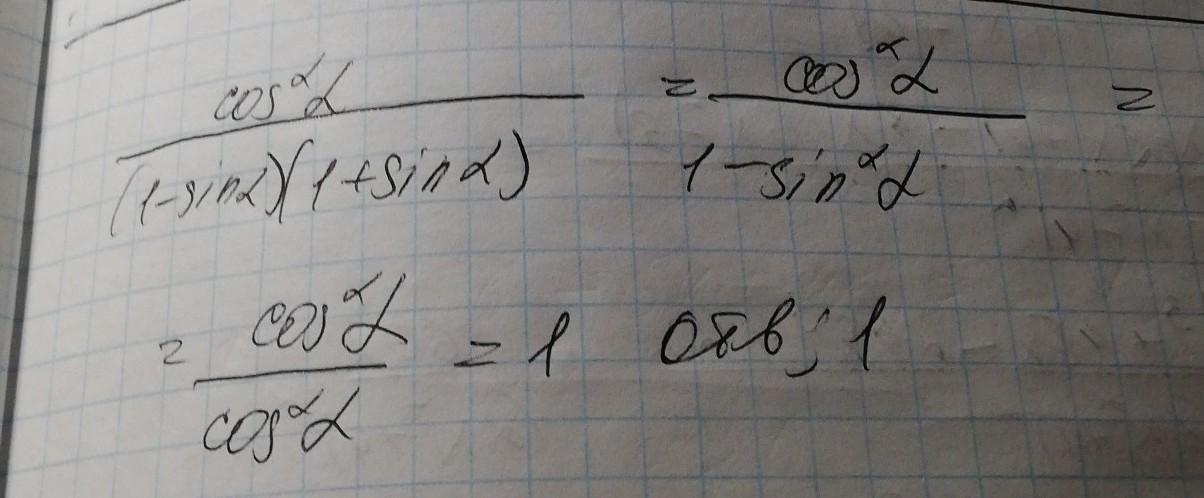 cos²α / (1-sinα)(1+sinα) = cos²α / 1-sin²α =
= cos²α / cos²α = 1 Отв: 1